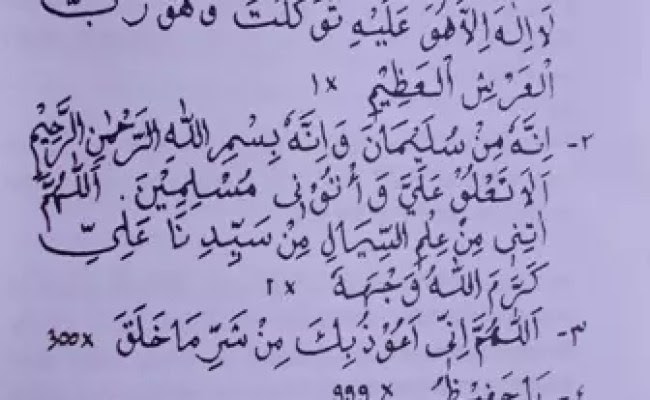 لَا إِلٰهَ إِلَّا هُوَ عَلَيْهِ تَوَكَّلْتُ وَهُوَ رَبُّ
الْعَرْشِ الْعَظِيْمِ ١ x
٢- اِنَّهُ مِنْ سُلَيْمَانَ وَاِنَّهُ بِسْمِ اللّٰهِ الرَّحْمٰنِ الرَّحِيْمِ
اَلَّا تَعْلُوْ عَلَيَّ وَأْتُوْنِى مُسْلِمِيْنَ . اَللّٰهُمَّ
اٰتِنِى مِنْ عِلْمِ السِّيمَالِ مِنْ سَيِّدِنَا عَلِيِّ
كَرَّمَ اللّٰهُ وَجْهَهَ ٢ x
٣- اَللّٰهُمَّ اِنِّى اَعُوْذُ بِكَ مِنْ شَرِّ مَا خَلَقَ 300 x
٤- يَا حَفِيْظُ 999 x